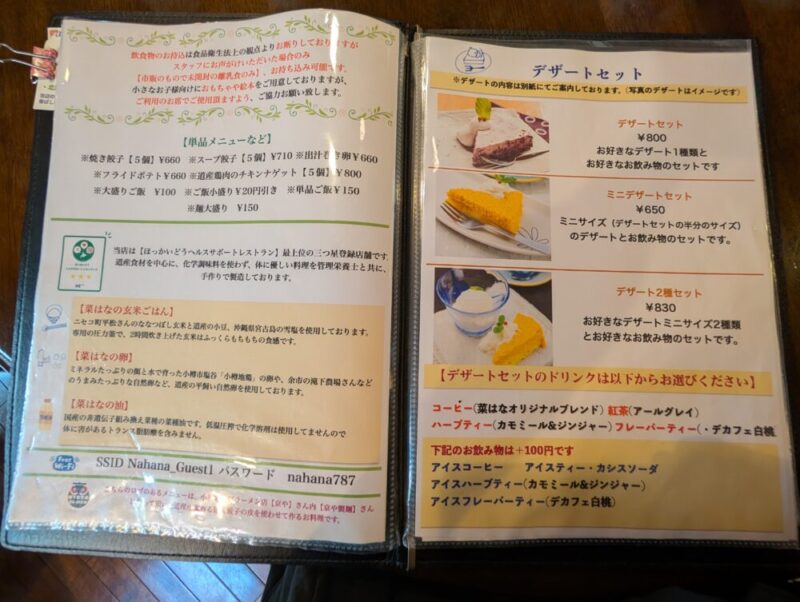 飲食物のお持込は食品衛生法上の観点よりお断りしておりますが
スタッフにお声がけいただいた場合のみ
【市販のもので未開封の離乳食のみ】、お持ち込み可能です。
小さなお子様向けにおもちゃや絵本をご用意しておりますが、
ご利用のお席でご使用頂ますよう、ご協力お願い致します。
【単品メニューなど】
※焼き餃子【5個】¥660 ※スープ餃子【5個】¥710 ※出汁巻き卵¥660
※フライドポテト¥660 ※道産鶏肉のチキンナゲット【5個】¥800
※大盛りご飯 ¥100 ※ご飯小盛り¥20円引き ※単品ご飯¥150
※麺大盛り ¥150
当店は【ほっかいどうヘルスサポートレストラン】最上位の三つ星登録店舗です。
道産食材を中心に、化学調味料を使わず、体に優しい料理を管理栄養士と共に、
手作りで製造しております。
【菜はなの玄米ごはん】
ニセコ町平松さんのななつぼし玄米と道産の小豆、沖縄県宮古島の雪塩を使用しております。
専用の圧力釜で、2時間炊き上げた玄米はふっくらもちもちの食感です。
【菜はなの卵】
ミネラルたっぷりの餌と水で育った小樽市塩谷「小樽地鶏」の卵や、余市の滝下農場さんなど
のうまみたっぷりな自然卵など、道産の平飼い自然卵を使用しております。
【菜はなの油】
国産の非遺伝子組み換え菜種の菜種油です。低温圧搾で化学溶剤は使用してませんので
体に害があるトランス脂肪酸を含みません。
Free Wi-Fi
SSID Nahana_Guest1 パスワード nahana787
こちらのロゴのあるメニューは、小樽
ラーメン店【京や】さん内【京や製麺】さん
餃子の皮を使わせて作るお料理です。
デザートセット
※デザートの内容は別紙にてご案内しております。(写真のデザートはイメージです)
デザートセット
¥800
お好きなデザート1種類と
お好きなお飲み物のセットです
ミニデザートセット
¥650
ミニサイズ(デザートセットの半分のサイズ)
のデザートとお飲み物のセットです。
デザート2種セット
¥830
お好きなデザートミニサイズ2種類
とお好きなお飲み物のセットです。
【デザートセットのドリンクは以下からお選びください】
コーヒー(菜はなオリジナルブレンド) 紅茶(アールグレイ)
ハーブティー(カモミール&ジンジャー) フレーバーティー(・デカフェ白桃
下記のお飲み物は+100円です
アイスコーヒー アイスティー・カシスソーダ
アイスハーブティー(カモミール&ジンジャー)
アイスフレーバーティー(デカフェ白桃)